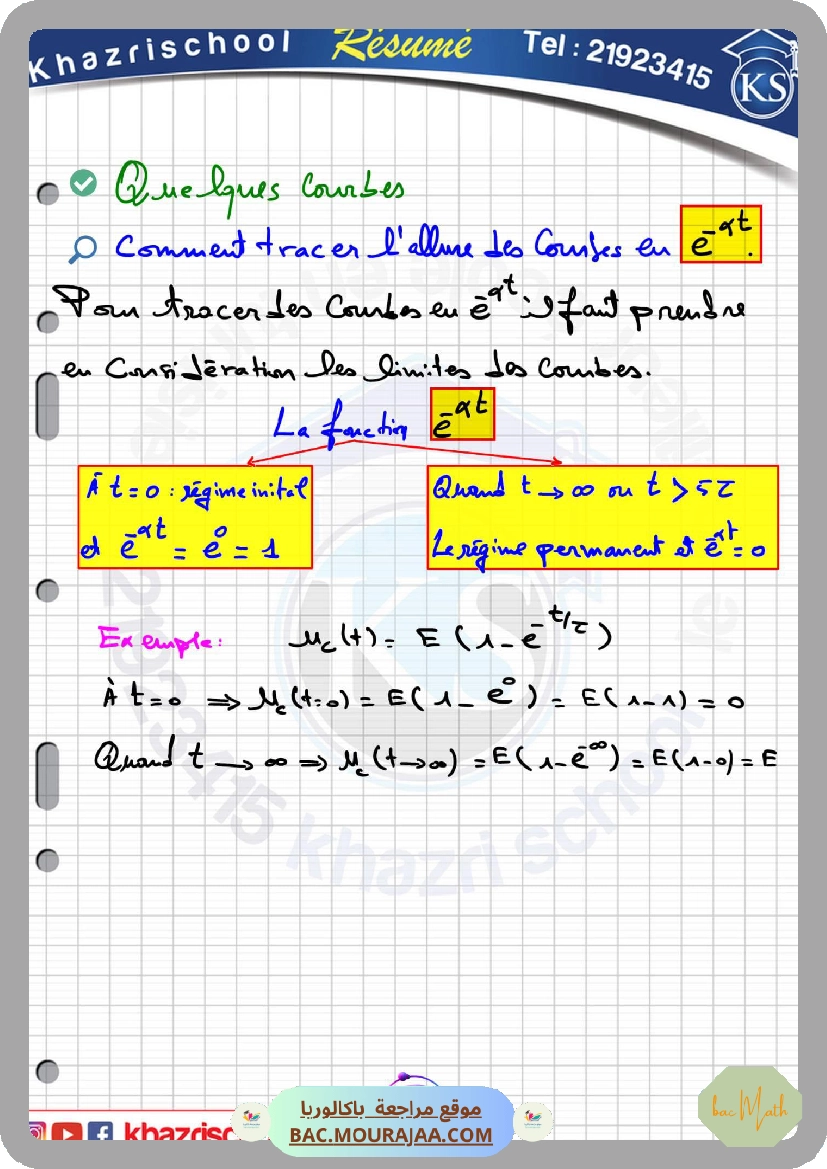 Khazrischool Résumé Tel : 21923415
KS
Quelques courbes
Comment tracer l'allure des courbes en e^-αt.
Pour tracer des courbes en e^-αt il faut prendre
en considération les limites des courbes.
La fonction e^-αt
À t = 0 : régime inital
et e^-αt = e^0 = 1
Quand t → ∞ ou t > 5τ
Le régime permanent et e^-αt = 0
Exemple: u_c(t) = E (1 - e^-t/τ)
À t = 0 ⇒ u_c(t=0) = E(1 - e^0) = E(1-1) = 0
Quand t → ∞ ⇒ u_c(t→∞) = E(1-e^-∞) = E(1-0) = E
21923415 khazri school
موقع مراجعة باكالوريا
BAC.MOURAJAA.COM
bac Math